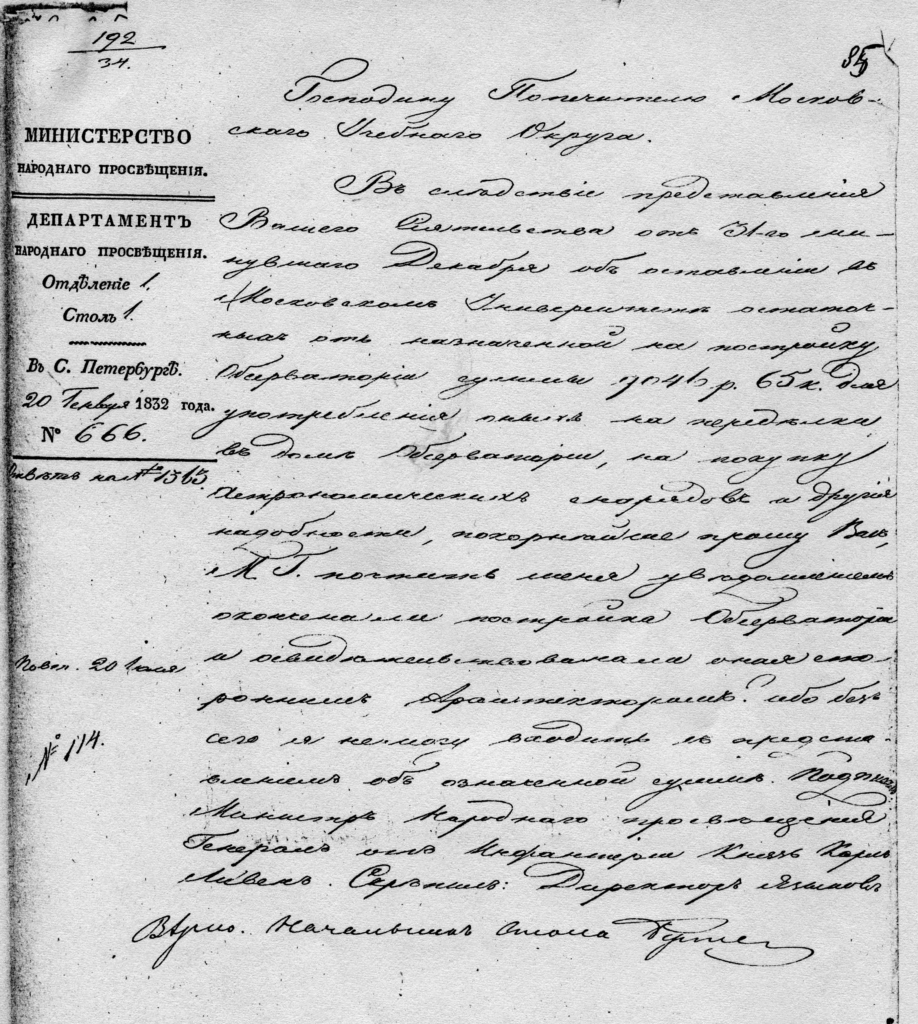 192
34.
85
МИНИСТЕРСТВО
НАРОДНАГО ПРОСВѢЩЕНІЯ.
ДЕПАРТАМЕНТЪ
НАРОДНАГО ПРОСВѢЩЕНІЯ.
Отдѣленіе 1.
Столъ 1.
Въ С. Петербургѣ.
20 Генваря 1832 года.
№ 666.
№ 1313
20 Іюля
№ 114.
Господину Попечителю Москов-
скаго Учебнаго Округа.
Въ слѣдствіе представленія
Вашего Сіятельства отъ 31-го ми-
нувшаго Декабря объ оставленіи въ
Московскомъ Университетѣ остаточ-
ныхъ отъ назначенной на постройку
Обсерваторіи суммы р. 65 к. для
употребленія оныхъ на передѣлки
въ домѣ Обсерваторіи, на покупку
Астрономическихъ снарядовъ и другія
надобности, покорнѣйше прошу Васъ,
М. Г. почтить меня увѣдомленіемъ
окончена ли постройка Обсерваторіи
и освидѣтельствована ли оная сто-
роннимъ Архитекторомъ? ибо безъ
сего я не могу входить съ предста-
вленіемъ объ означенной суммѣ. Подписалъ
Министръ Народнаго просвѣщенія
Генералъ отъ Инфантеріи Князь Карлъ
Ливенъ. Скрѣпилъ: Директоръ Языковъ
Вѣрно. Начальникъ Стола